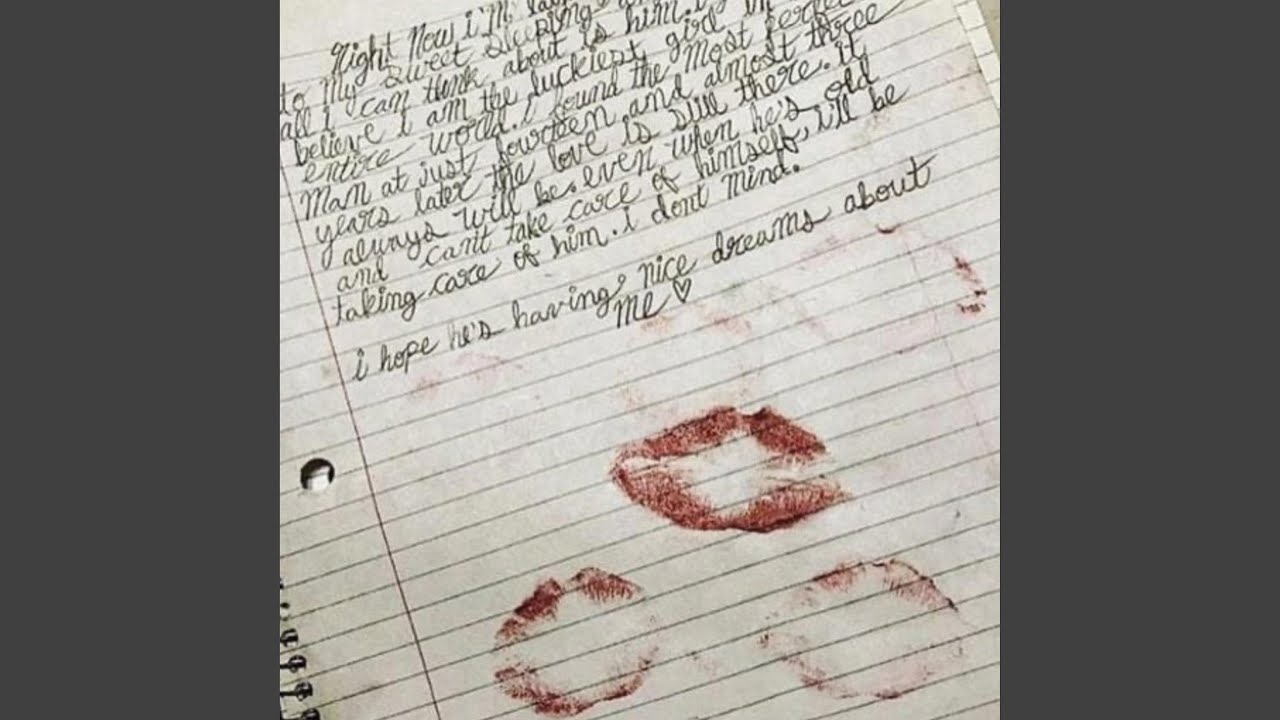 Right Now i'm
to My Sweet Sleeping
all i can think about is him. i
believe i am the luckiest girl in
entire world. i found the Most perfe
Man at just fourteen and almost three
years later the love is still there. it
always will be. even when he's old
and can't take care of himself, i'll be
taking care of him. i dont mind.
i hope he's having nice dreams about
Me ♡